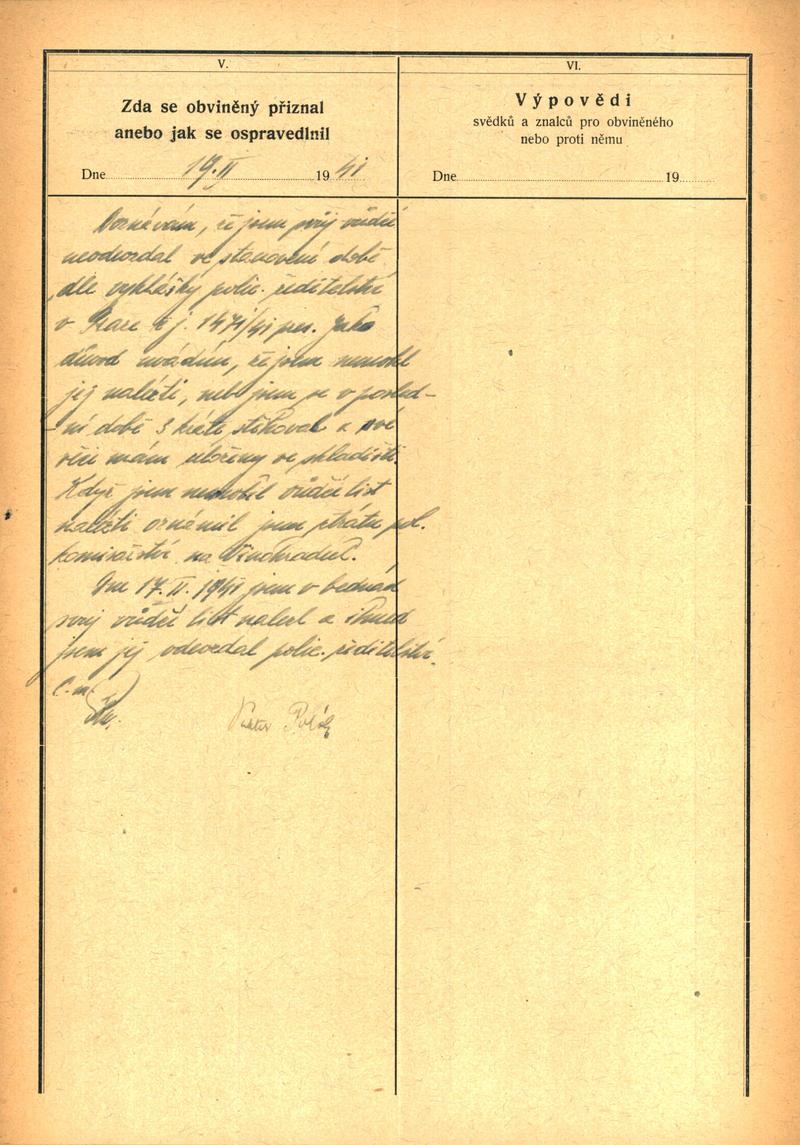 V.
Zda se obviněný přiznal
anebo jak se ospravedlnil
Dne 19. II 1941
Doznávám, že jsem svůj vůdčí
neodevzdal ve stanovené době
dle vyhlášky polic. ředitelství
v Praze č j. 1471/41 pres. Jako
důvod uvádím, že jsem nemohl
jej nalézti, neb jsem se v posled-
ní době 3 kráte stěhoval a své
věci mám uloženy ve skladišti.
Když jsem nemohl vůdčí list
nalézti oznámil jsem ztrátu pol.
komisařství na Vinohradech.
Dne 17. II. 1941 jsem v bednách
svůj vůdčí list nalezl a ihned
jsem jej odevzdal polic. ředitelství.
Viktor Polák
VI.
Výpovědi
svědků a znalců pro obviněného
nebo proti němu
Dne 19